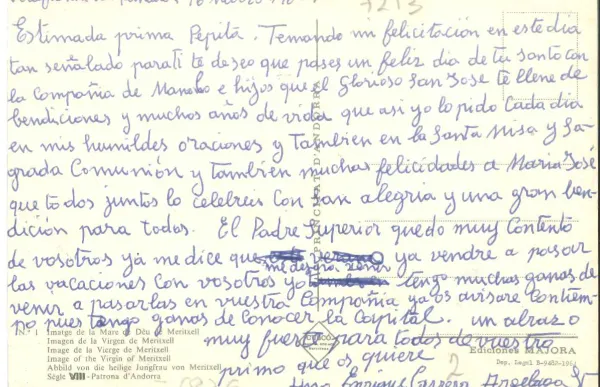 7213
Estimada prima Pepita. Temando mi felicitación en este dia
tan señalado para ti te deseo que pases un feliz dia de tu santo con
la compañia de Manolo e hijos que el glorioso San José te llene de
bendiciones y muchos años de vida que asi yo lo pido cada dia
en mis humildes oraciones y tambien en la Santa Misa y Sa-
grada Comunión y tambien muchas felicidades a Maria José
que todos juntos lo celebreis con gran alegria y una gran ben-
dición para todos. El Padre Superior quedo muy contento
de vosotros ya me dice que ya vendre a pasar
las vacaciones con vosotros yo tengo muchas ganas de
venir a pasarlas en vuestra Compañia ya os avisare con tiem-
po pues tengo ganas de conocer la Capital. un abrazo
muy fuerte para todos de vuestro
primo que os quiere
N.º 1
Imatge de la Mare de Déu de Meritxell
Imagen de la Virgen de Meritxell
Image de la Vierge de Meritxell
Image of the Virgin of Meritxell
Abbild von die heilige Jungfrau von Meritxell
Ségle VIII - Patrona d'Andorra
PRINCIPAT D'ANDORRA
Ediciones MAJORA
2